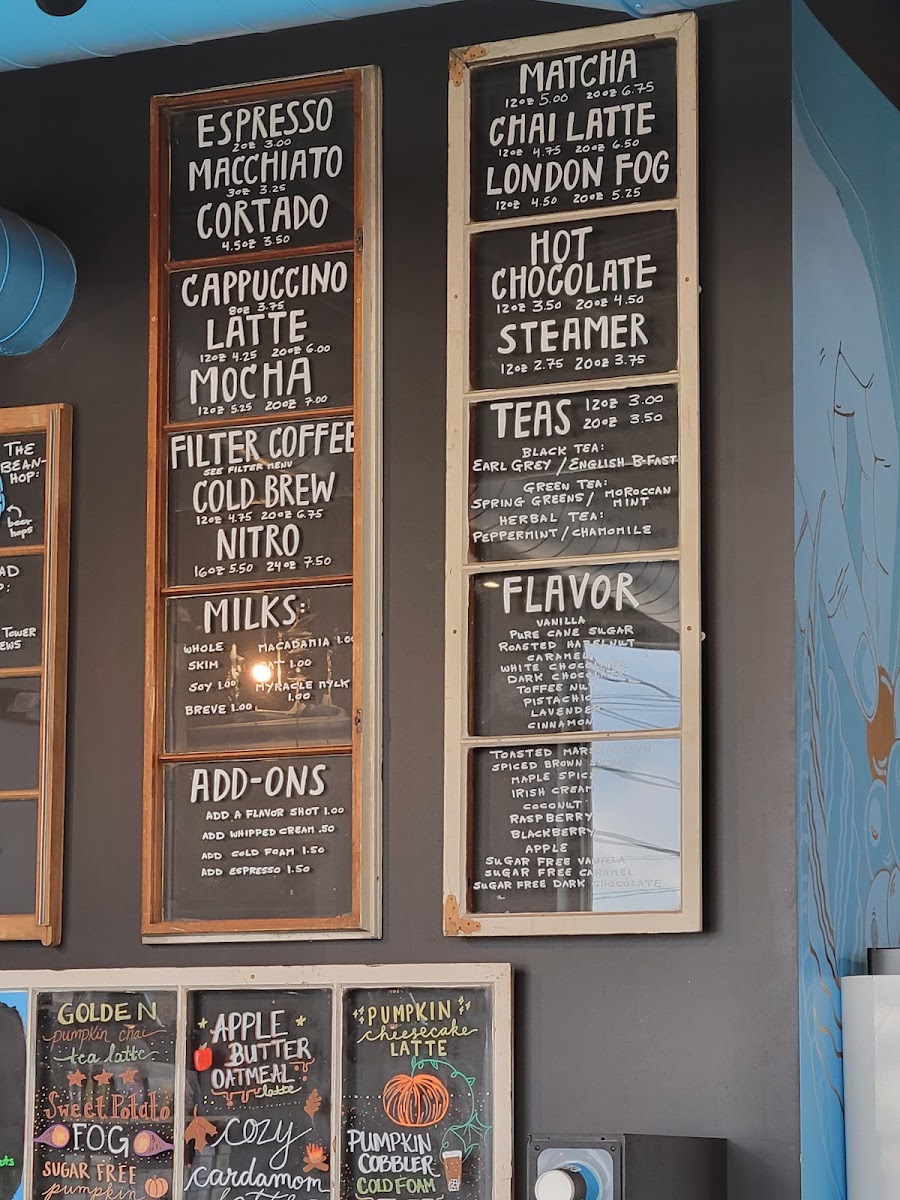 THE
BEAN-
HOP:
beer
hops
AD
P:
TOWER
EWS
ESPRESSO
2OZ 3.00
MACCHIATO
3OZ 3.25
CORTADO
4.5OZ 3.50
CAPPUCCINO
8OZ 3.75
LATTE
12OZ 4.25 20OZ 6.00
MOCHA
12OZ 5.25 20OZ 7.00
FILTER COFFEE
SEE FILTER MENU
COLD BREW
12OZ 4.75 20OZ 6.75
NITRO
16OZ 5.50 24OZ 7.50
MILKS:
WHOLE MACADAMIA 1.00
SKIM 1.00
SOY 1.00 MYRACLE MYLK
1.00
BREVE 1.00
ADD-ONS
ADD A FLAVOR SHOT 1.00
ADD WHIPPED CREAM .50
ADD COLD FOAM 1.50
ADD ESPRESSO 1.50
MATCHA
12OZ 5.00 20OZ 6.75
CHAI LATTE
12OZ 4.75 20OZ 6.50
LONDON FOG
12OZ 4.50 20OZ 5.25
HOT
CHOCOLATE
12OZ 3.50 20OZ 4.50
STEAMER
12OZ 2.75 20OZ 3.75
TEAS 12OZ 3.00
20OZ 3.50
BLACK TEA:
EARL GREY / ENGLISH B-FAST
GREEN TEA:
SPRING GREENS / MOROCCAN
MINT
HERBAL TEA:
PEPPERMINT / CHAMOMILE
FLAVOR
VANILLA
PURE CANE SUGAR
ROASTED HAZELNUT
CARAMEL
WHITE CHOCOLATE
DARK CHOCOLATE
TOFFEE NUT
PISTACHIO
LAVENDER
CINNAMON
TOASTED MARSHMALLOW
SPICED BROWN SUGAR
MAPLE SPICE
IRISH CREAM
COCONUT
RASPBERRY
BLACKBERRY
APPLE
SUGAR FREE VANILLA
SUGAR FREE CARAMEL
SUGAR FREE DARK CHOCOLATE
GOLDEN
pumpkin chai
tea latte
Sweet Potato
FOG
SUGAR FREE
pumpkin
APPLE
BUTTER
OATMEAL
latte
cozy
cardamom
latte
PUMPKIN
cheesecake
LATTE
PUMPKIN
COBBLER
COLD FOAM